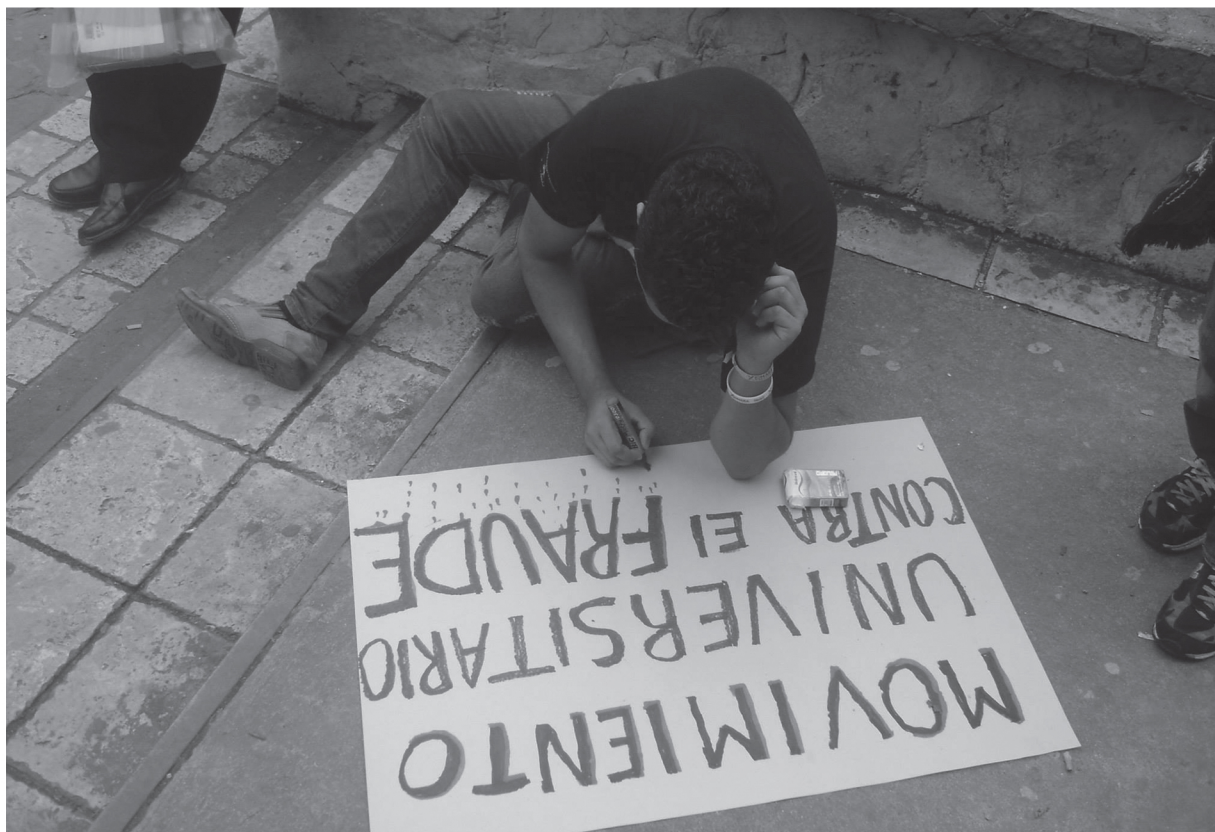 MOVIMIENTO
UNIVERSITARIO
CONTRA El FRAUDE